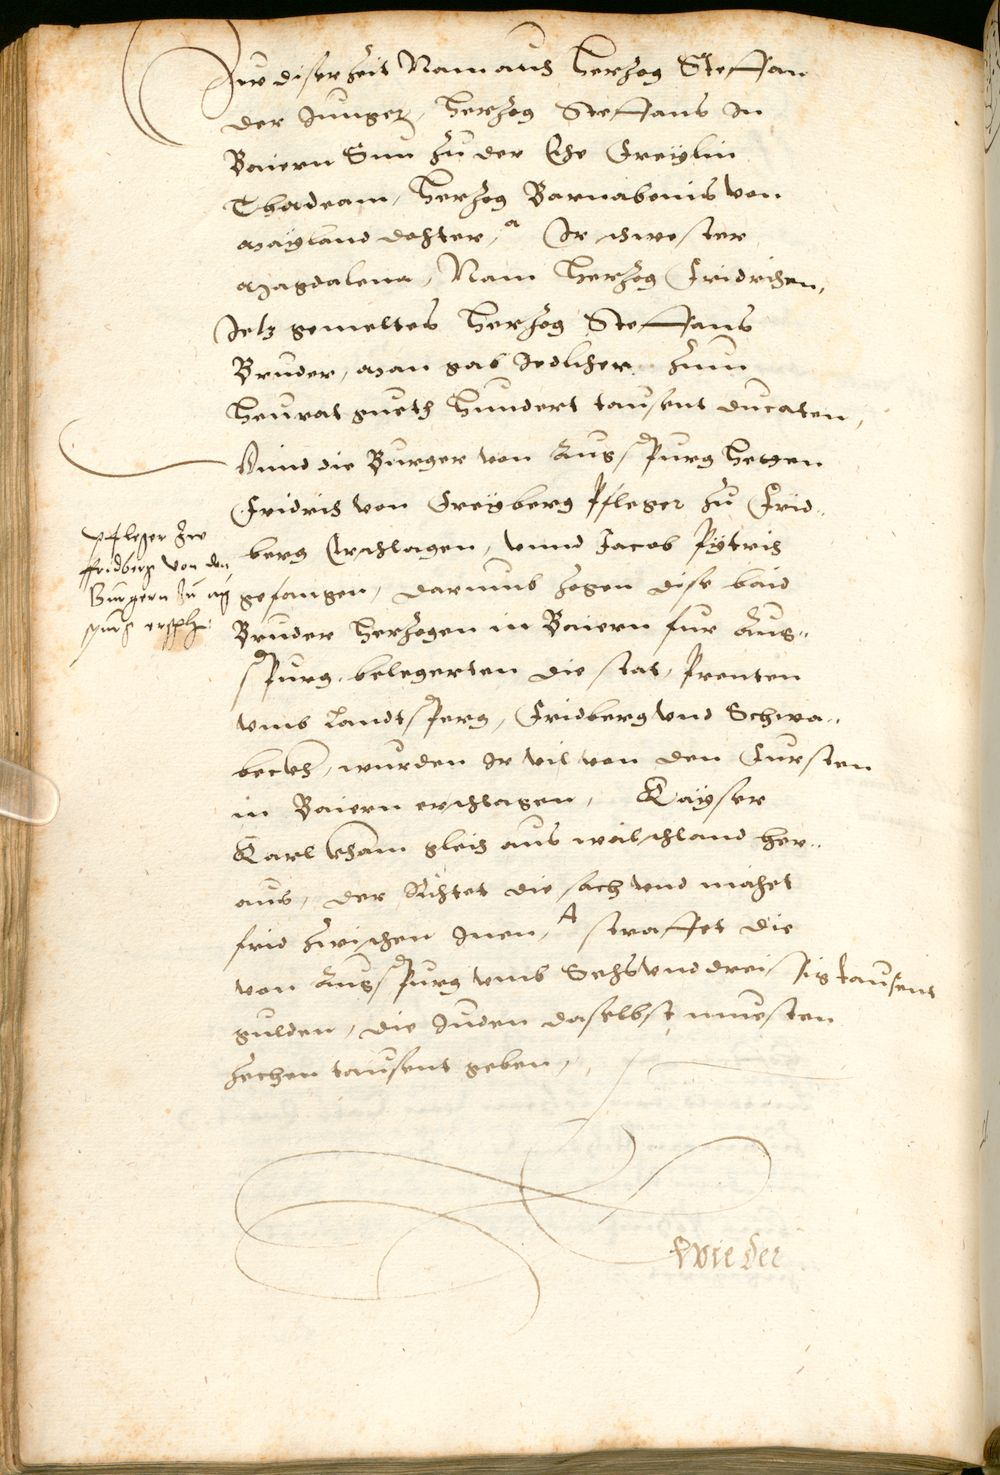 Zur diser Zeit Nam auch Hertzog Steffan
der Junger, Hertzog Steffans In
Baiern Sun zu der Ehe Freylin
Thadeam, Hertzog Barnabonis von
Mayland dochter, a Ir schwester
Magdalena, Nam Hertzog Fridrichen,
Jetz gemeltes Hertzog Steffans
Bruder, Man gab Jedlicher zum
Heurat gueth Hundert tausent ducaten,
Unnd die Burger von Augspurg hetten
Fridrich von Freyberg Pfleger zu Frid„
berg Erschlagen, unnd Jacob Pytrich
gefangen, darumb zogen dise baid
Bruder Hertzogen in Baiern fur Aug„
spurg, belegerten die stat, Prenten
umb Landtsperg, Fridberg und Schwa„
beckh, wurden Ir vil von den Fursten
in Baiern erschlagen, Kayser
Karl kham gleich aus wälschland her„
aus, der Richtet die sach und machet
frid zwischen Inen, A straffet die
von Augspurg umb Sechsunddreissig tausent
gulden, die Juden daselbst muesten
zechen tausent geben,
Pfleger zw
fridberg von den
Burgern zu aug
spurg erschl:
Wie der